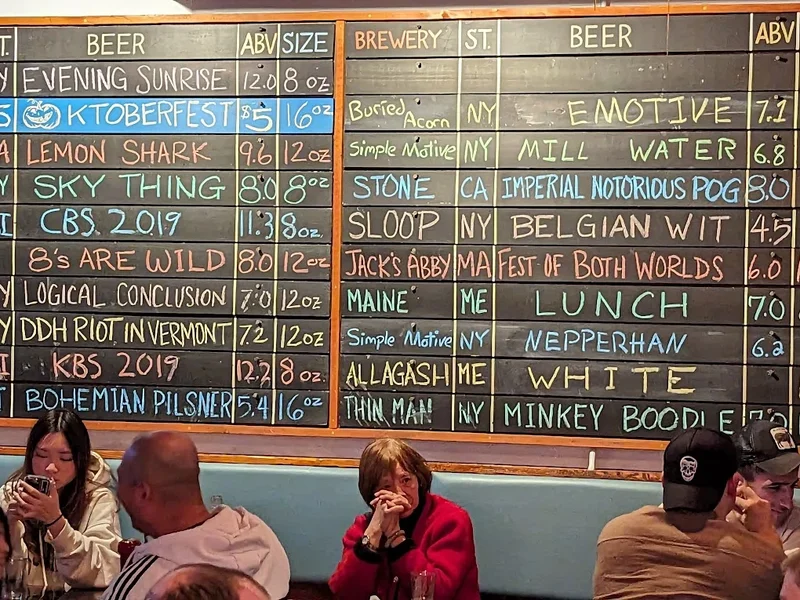 T. BEER ABV SIZE
Y EVENING SUNRISE 12.0 8 oz
S KTOBERFEST $5 16oz
A LEMON SHARK 9.6 12oz
Y SKY THING 8.0 8oz
I CBS 2019 11.3 8oz.
8's ARE WILD 8.0 12oz
Y LOGICAL CONCLUSION 7.0 12oz
Y DDH RIOT IN VERMONT 7.2 12oz
I KBS 2019 12.2 8 oz.
T BOHEMIAN PILSNER 5.4 16oz
BREWERY ST. BEER ABV
Buried Acorn NY EMOTIVE 7.1
Simple Motive NY MILL WATER 6.8
STONE CA IMPERIAL NOTORIOUS POG 8.0
SLOOP NY BELGIAN WIT 4.5
JACK'S ABBY MA FEST OF BOTH WORLDS 6.0
MAINE ME LUNCH 7.0
Simple Motive NY NEPPERHAN 6.2
ALLAGASH ME WHITE
THIN MAN NY MINKEY BOODLE